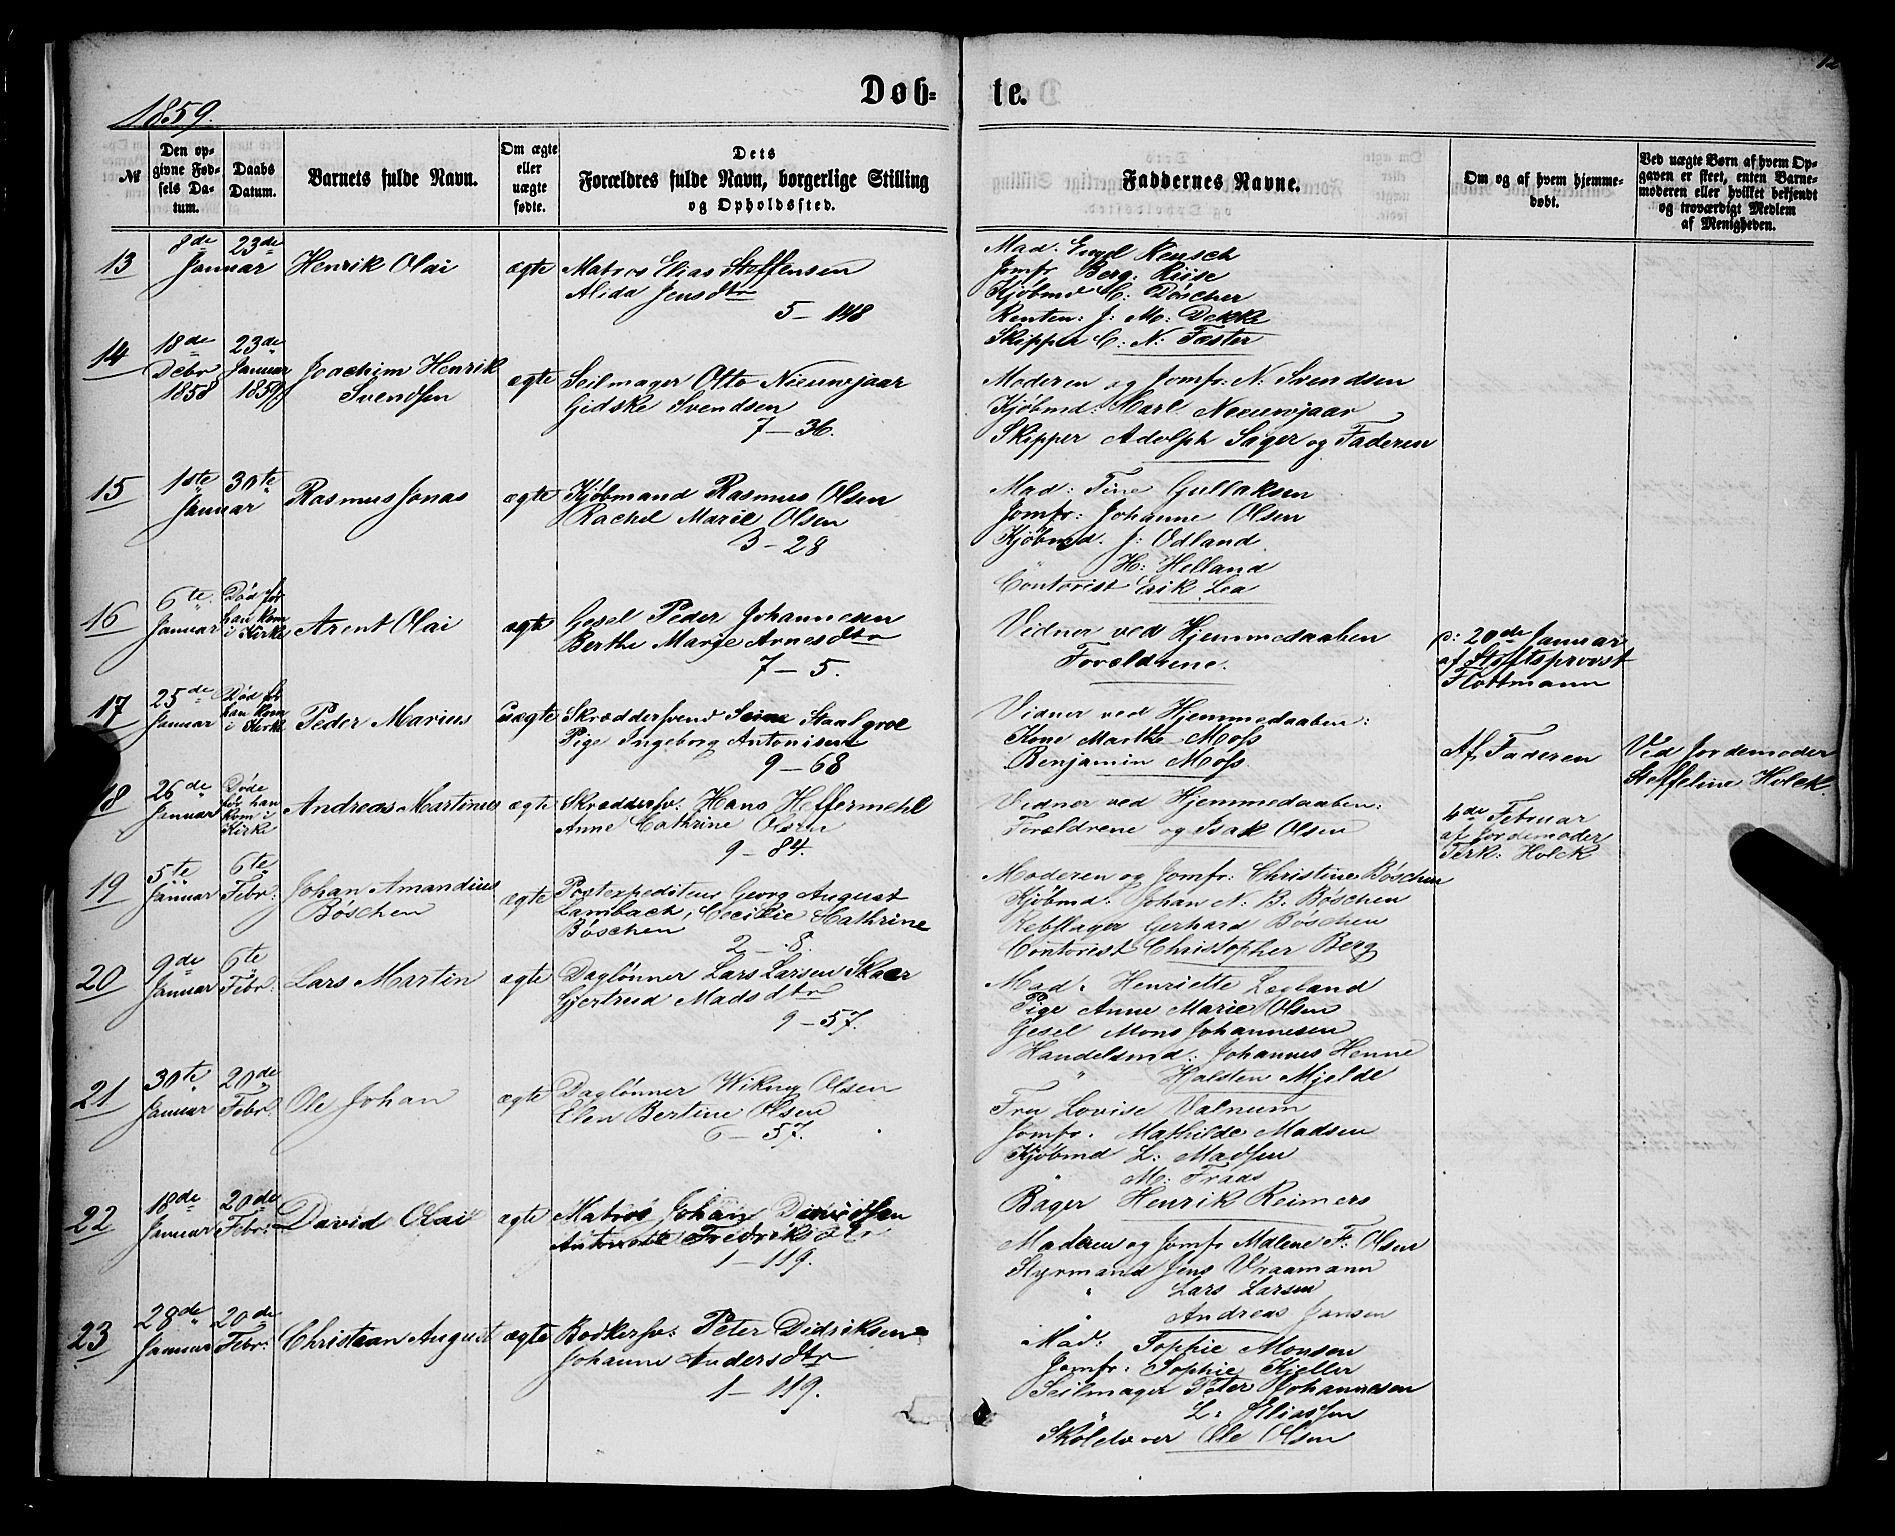 12
Døb-
te.
1859.
№
Den op-
givne Fød-
sels Da-
tum.
Daabs
Datum.
Barnets fulde Navn.
Om ægte
eller
uægte
fødte.
Dets
Forældres fulde Navn, borgerlige Stilling
og Opholdssted.
Faddernes Navne.
Om og af hvem hjemme-
døbt.
Ved uægte Børn af hvem Op-
gaven er skeet, enten Barne-
moderen eller hvilket bekjendt
og troværdigt Medlem
af Menigheden.
13
8de
23de
Januar
Henrik Olai
ægte
Matros Elias Stoffensen
Alida Jensdtr
5 - 148
Mad. Reusch
Jomfr Berg: Riise
Kjøbmd C: Döscher
Renten: J: M: Dekke
Skipper C: N: Fæster
14
18de
Debr
1858
23de
Januar
1859
Joachim Henrik
Svendsen
ægte
Seilmager Otto Nieuwjaar
Gidske Svendsen
7 - 36.
Moderen og Jomfr: N: Svendsen
Kjøbmd: Carl Nieuwjaar
Skipper Adolph Sager og Faderen
15
1ste
30te
Januar
Rasmus Jonas
ægte
Kjøbmand Rasmus Olsen
Rachel Marie Olsen
3 - 28
Mad: Tine Gullaksen
Jomfr: Johanne Olsen
Kjøbmd. J: Odland
H: Helland
Contorist Erik Lea
16
6te
Januar
Død før
han kom
i Kirke
Arent Olai
ægte
Gesel Peder Johannesen
Berthe Marie Arnesdtr
7 - 5.
Vidner ved Hjemmedaaben
Forældrene.
d: 20de Januar
af Stiftsprovst
Flottmann
17
25de
Januar
Død før
han kom
i Kirke
Peder Marius
Uægte
Skrædersvend Staalgroe
Pige Ingeborg Antonisen
9 - 68
Vidner ved Hjemmedaaben:
Kone Marthe Moss
Benjamin Moss.
Af Faderen
Ved Jordemoder
Steffeline Holck.
18
26de
Januar
Døde
før han
kom i
Kirke
Andreas Martinus
ægte
Skræddersv: Hans Heffermehl
Anne Cathrine Olsen
9 - 84.
Vidner ved Hjemmedaaben:
Forældrene og Isak Olsen
4de Februar
af Jordemoder
Holck
19
5te
Januar
6te
Febr:
Johan Amandius
Böschen
ægte
Postexpediteur Georg August
Lambach, Cecilie Cathrine
Böschen
2 - 8.
Moderen og Jomfr: Christine Böschen
Kjøbmd. Johan N. B. Böschen
Rebslager Gerhard Böschen
Contorist Christopher Berg
20
9de
Januar
6te
Febr:
Lars Martin
ægte
Daglønner Lars Larsen Skaar
Gjertrud Madsdtr
9 - 57.
Mad: Henriette Lægland
Pige Anne Marie Olsen
Gesel Mons Johannesen
Handelsmd: Johannes Henne
" Halsten Mjelde
21
30te
Januar
20de
Febr:
Ole Johan
ægte
Daglønner Wiking Olsen
Elen Bertine Olsen
6 - 57.
Fru Lovise Valnum
Jomfr. Mathilde Madsen
Kjøbmd L: Madsen
M: Traas
Bager Henrik Reimers
22
18de
Januar
20de
Febr:
David Olai
ægte
Matros Johan Davidsen
Antonette Fredriksdtr
1 - 119.
Moderen og Jomfr Malene F: Olsen
Styrmand Jens Vraamann
" Lars Larsen
" Andreas Jansen
23
28de
Januar
20de
Febr:
Christian August
ægte
Bødkersv: Peter Didriksen
Johanne Andersdtr
1 - 119.
Mad: Sophie Monsen
Jomfr: Sophie Kjeller
Seilmager Peter Johannesen
" L: Eliassen
Ole Olsen